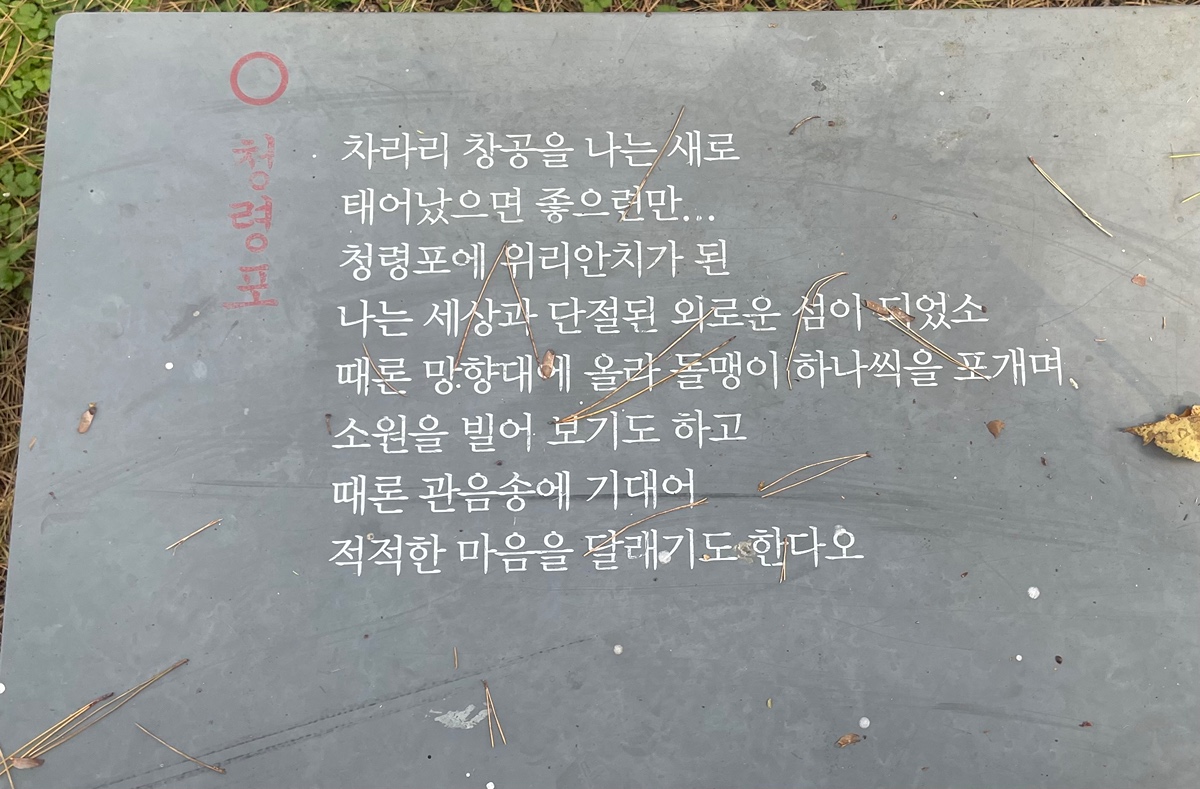 청령포
차라리 창공을 나는 새로
태어났으면 좋으련만...
청령포에 위리안치가 된
나는 세상과 단절된 외로운 섬이 되었소
때론 망향대에 올라 돌맹이 하나씩을 포개며,
소원을 빌어 보기도 하고
때론 관음송에 기대어
적적한 마음을 달래기도 한다오